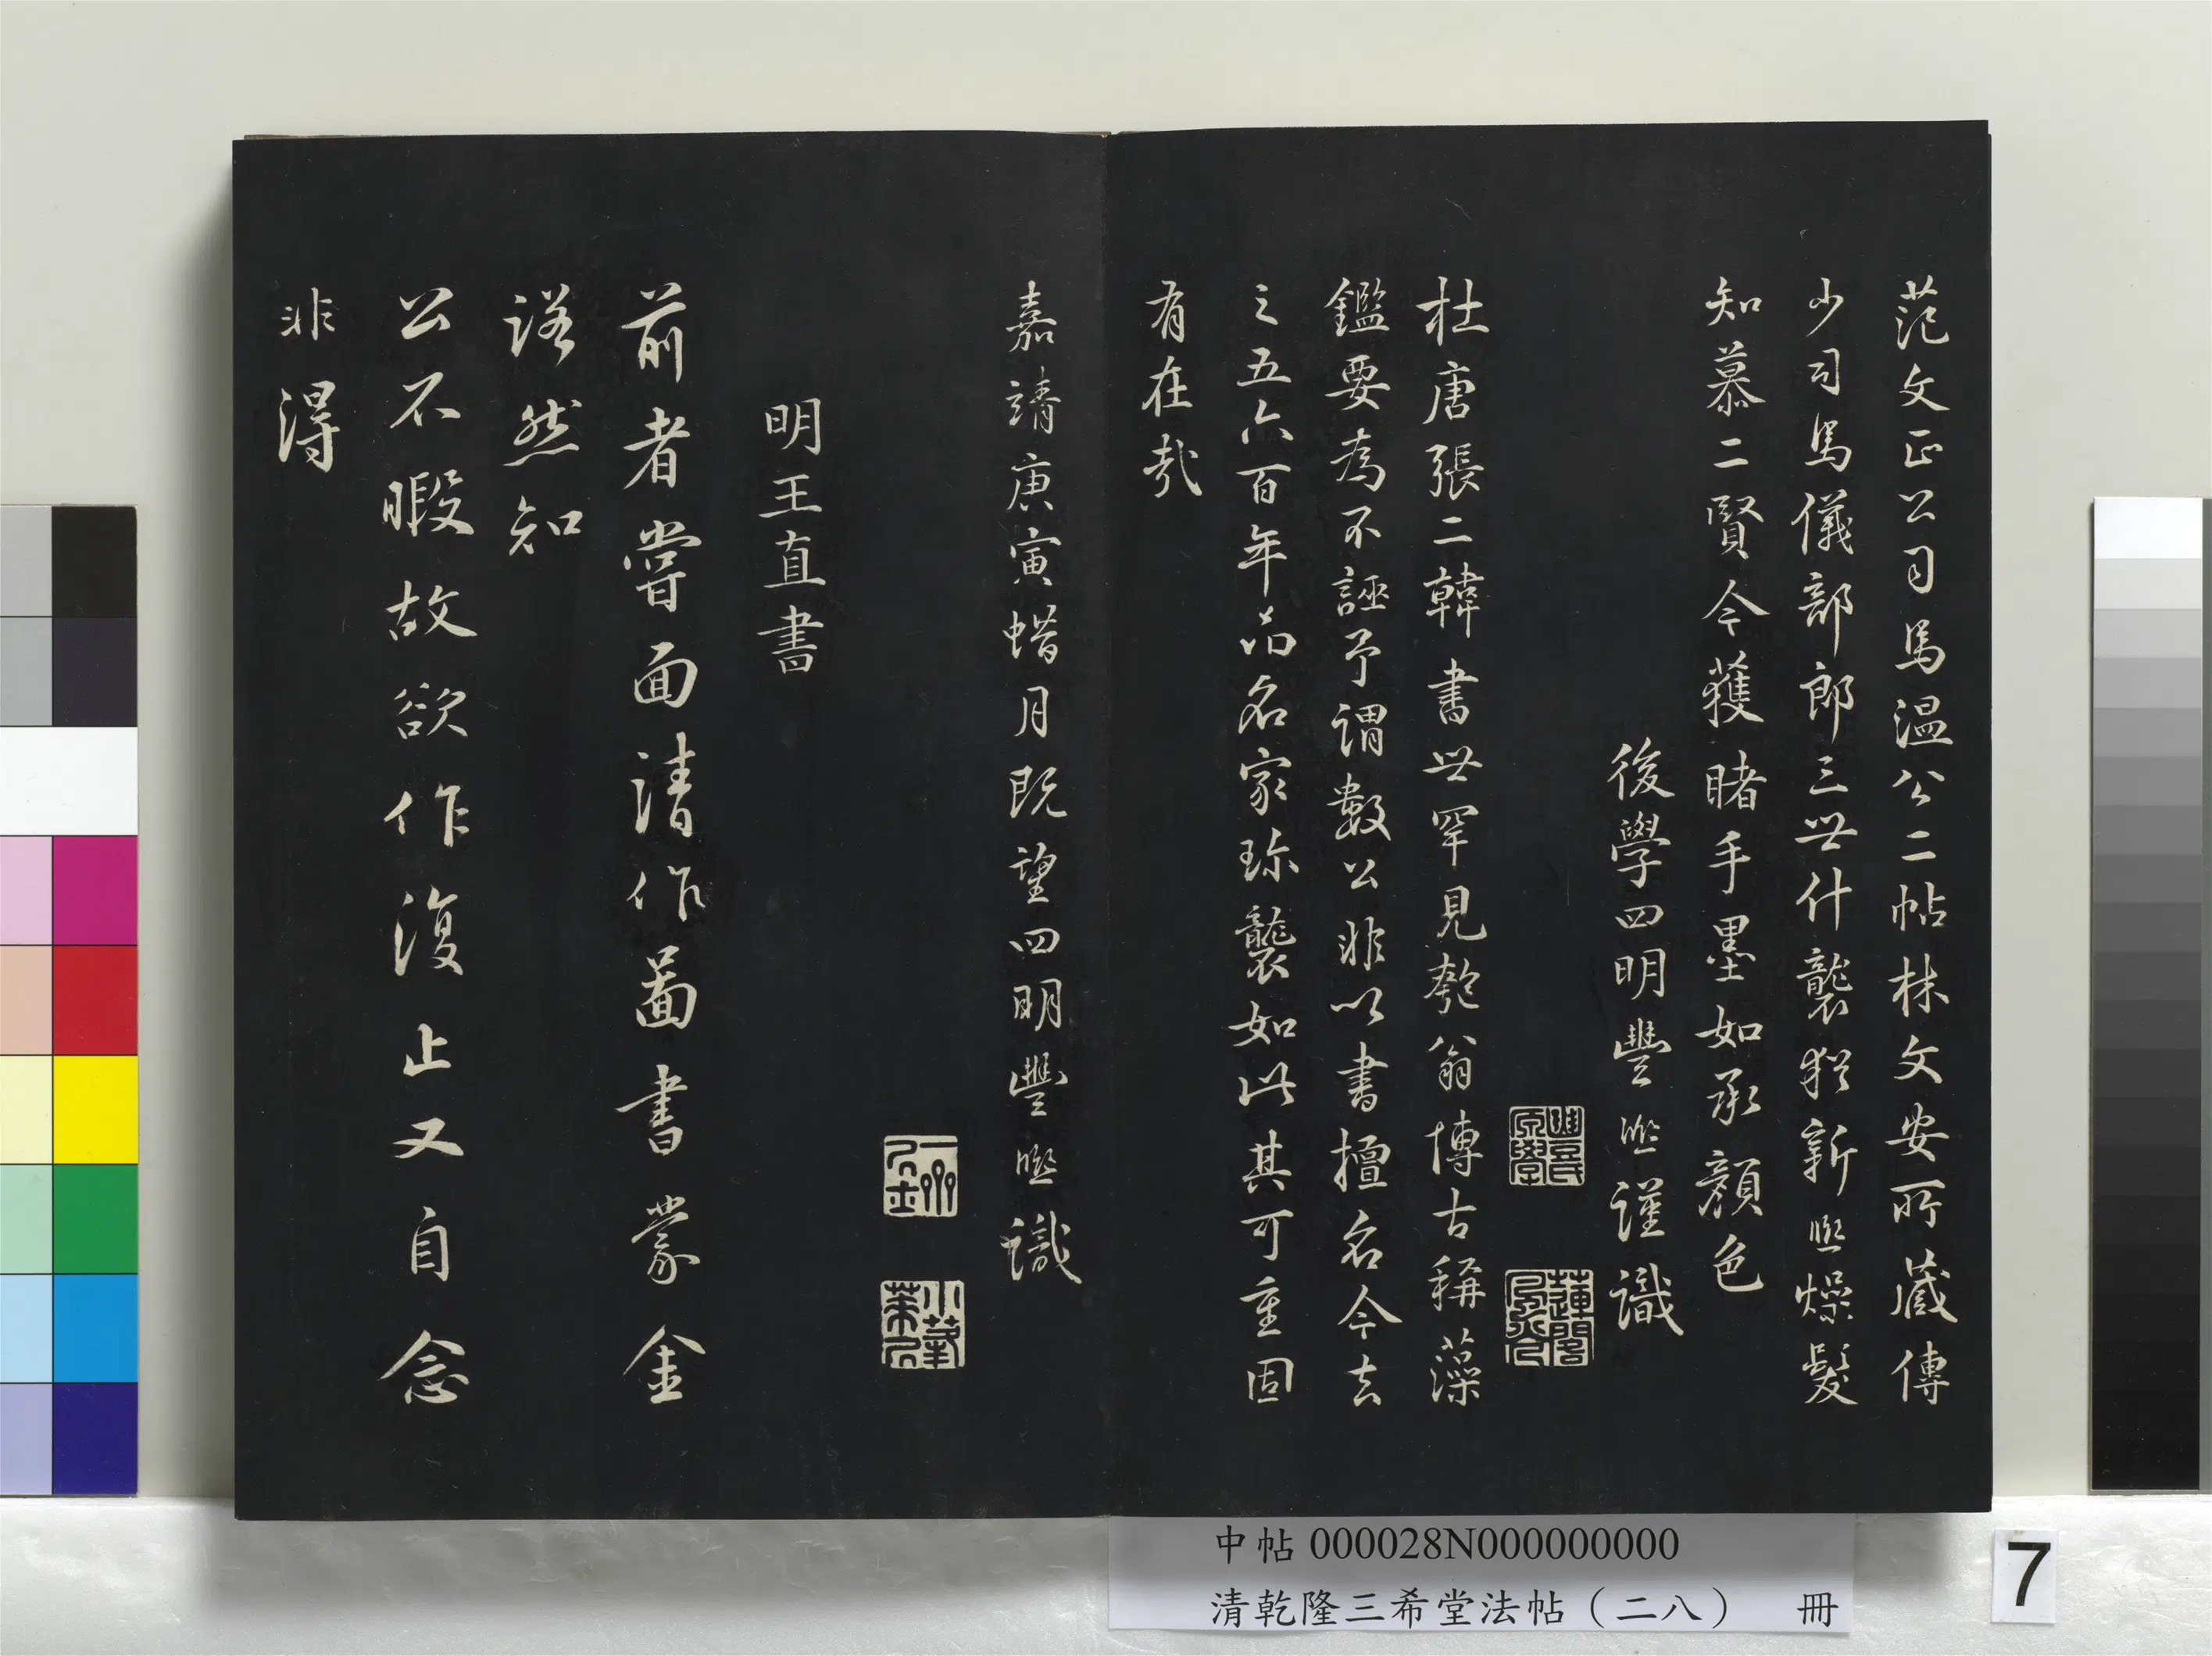 范文正公司馬溫公二帖林文安所藏傳
少司馬儀部郎三世什襲猶新熙燥髮
知慕二賢今獲睹手墨如承顏色
後學四明豐熙謹識
杜唐張二韓書世罕見匏翁博古稱藻
鑑要為不誣予謂數公非以書擅名今去
之五六百年品名家珍襲如此其可重固
有在哉
嘉靖庚寅蜡月既望四明豐熙識
明王直書
前者嘗面請作啚書蒙金
諾然知
公不暇故欲作復止又自念
非得
中帖 000028N000000000
清乾隆三希堂法帖（二八） 冊
7